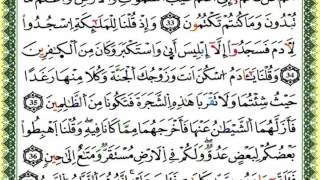 تُبْدُونَ وَمَا كُنْتُمْ تَكْتُمُونَ 33 وَإِذْ قُلْنَا لِلْمَلٰٓئِكَةِ اسْجُدُوا
لِاٰدَمَ فَسَجَدُوٓا إِلَّآ إِبْلِيسَ أَبٰى وَاسْتَكْبَرَ وَكَانَ مِنَ الْكٰفِرِينَ
34 وَقُلْنَا يٰٓاٰدَمُ اسْكُنْ أَنْتَ وَزَوْجُكَ الْجَنَّةَ وَكُلَا مِنْهَا رَغَدًا
حَيْثُ شِئْتُمَا وَلَا تَقْرَبَا هٰذِهِ الشَّجَرَةَ فَتَكُونَا مِنَ الظّٰلِمِينَ 35
فَأَزَلَّهُمَا الشَّيْطٰنُ عَنْهَا فَأَخْرَجَهُمَا مِمَّا كَانَا فِيهِ وَقُلْنَا اهْبِطُوا
بَعْضُكُمْ لِبَعْضٍ عَدُوٌّ وَلَكُمْ فِي الْأَرْضِ مُسْتَقَرٌّ وَمَتٰعٌ إِلٰى حِينٍ 36